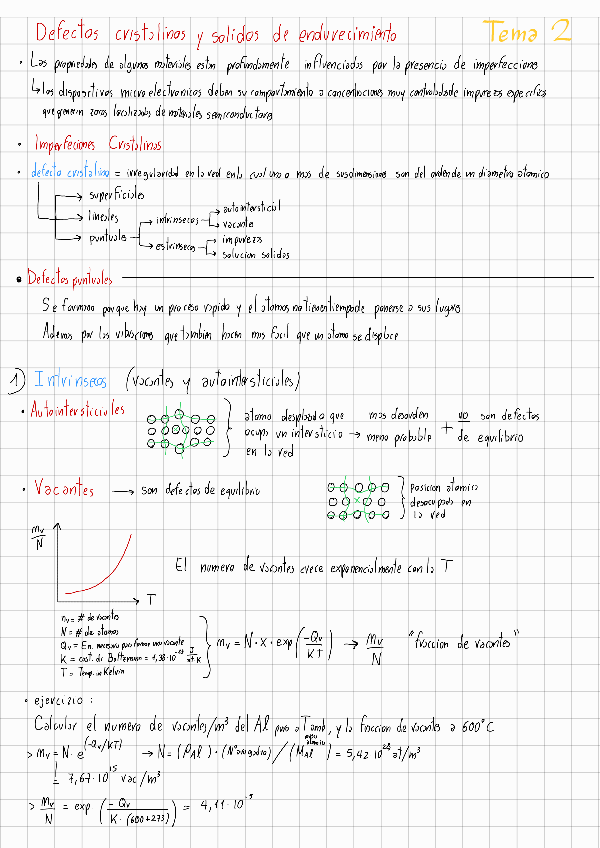 Defectos cristalinos y solidos de endurecimiento Tema 2
· Las propiedades de algunos materiales estan profundamente influenciados por la presencia de imperfecciones
↳ los dispositivos microelectronicos deben su comportamiento a concentraciones muy controladas de impurezas especificas
que generen zonas localizadas de materiales semiconductores
· Imperfeciones Cristalinas
· defecto cristalino = irregularidad en la red en la cual una o mas de sus dimensiones son del orden de un diametro atomico
→ superficiales
→ lineales
→ puntuales → intrinsecos → autointersticial
→ vacante
→ estrinsecos → impurezas
→ solucion solidas
• Defectos puntuales
Se forman porque hay un proceso rapido y el atomos no tienen tiempo de ponerse a sus lugares
Ademas por las vibraciones que tambien hacen mas facil que un atomo se desplace
1) Intrinsecos (vacantes y autointersticiales)
· Autointersticiales } atomo desplazado que ocupa un intersticio en la red → mas desorden menos probable + no son defectos de equilibrio
· Vacantes → son defectos de equilibrio } posicion atomica desocupada en la red
mv/N
El numero de vacantes crece exponencialmente con la T
T
nv = # de vacantes
N = # de atomos
Qv = En. necesaria para formar una vacante
K = cost. di Boltzmann = 1,38·10⁻²³ J/at·K
T = Temp. in Kelvin
} mv = N · X · exp(-Qv/KT) → mv/N "fraccion de vacantes"
· ejercicio :
Calcular el numero de vacantes/m³ del Al puro a Tamb, y la fraccion de vacantes a 600°C
> mv = N · e^(-Qv/KT) → N = (ρAl) · (Nº avogadro) / (MAl peso atomico) = 5,42 10²⁸ at/m³
= 7,67·10¹⁵ vac/m³
> mv/N = exp (-Qv/K·(600+273)) = 4,11·10⁻⁵